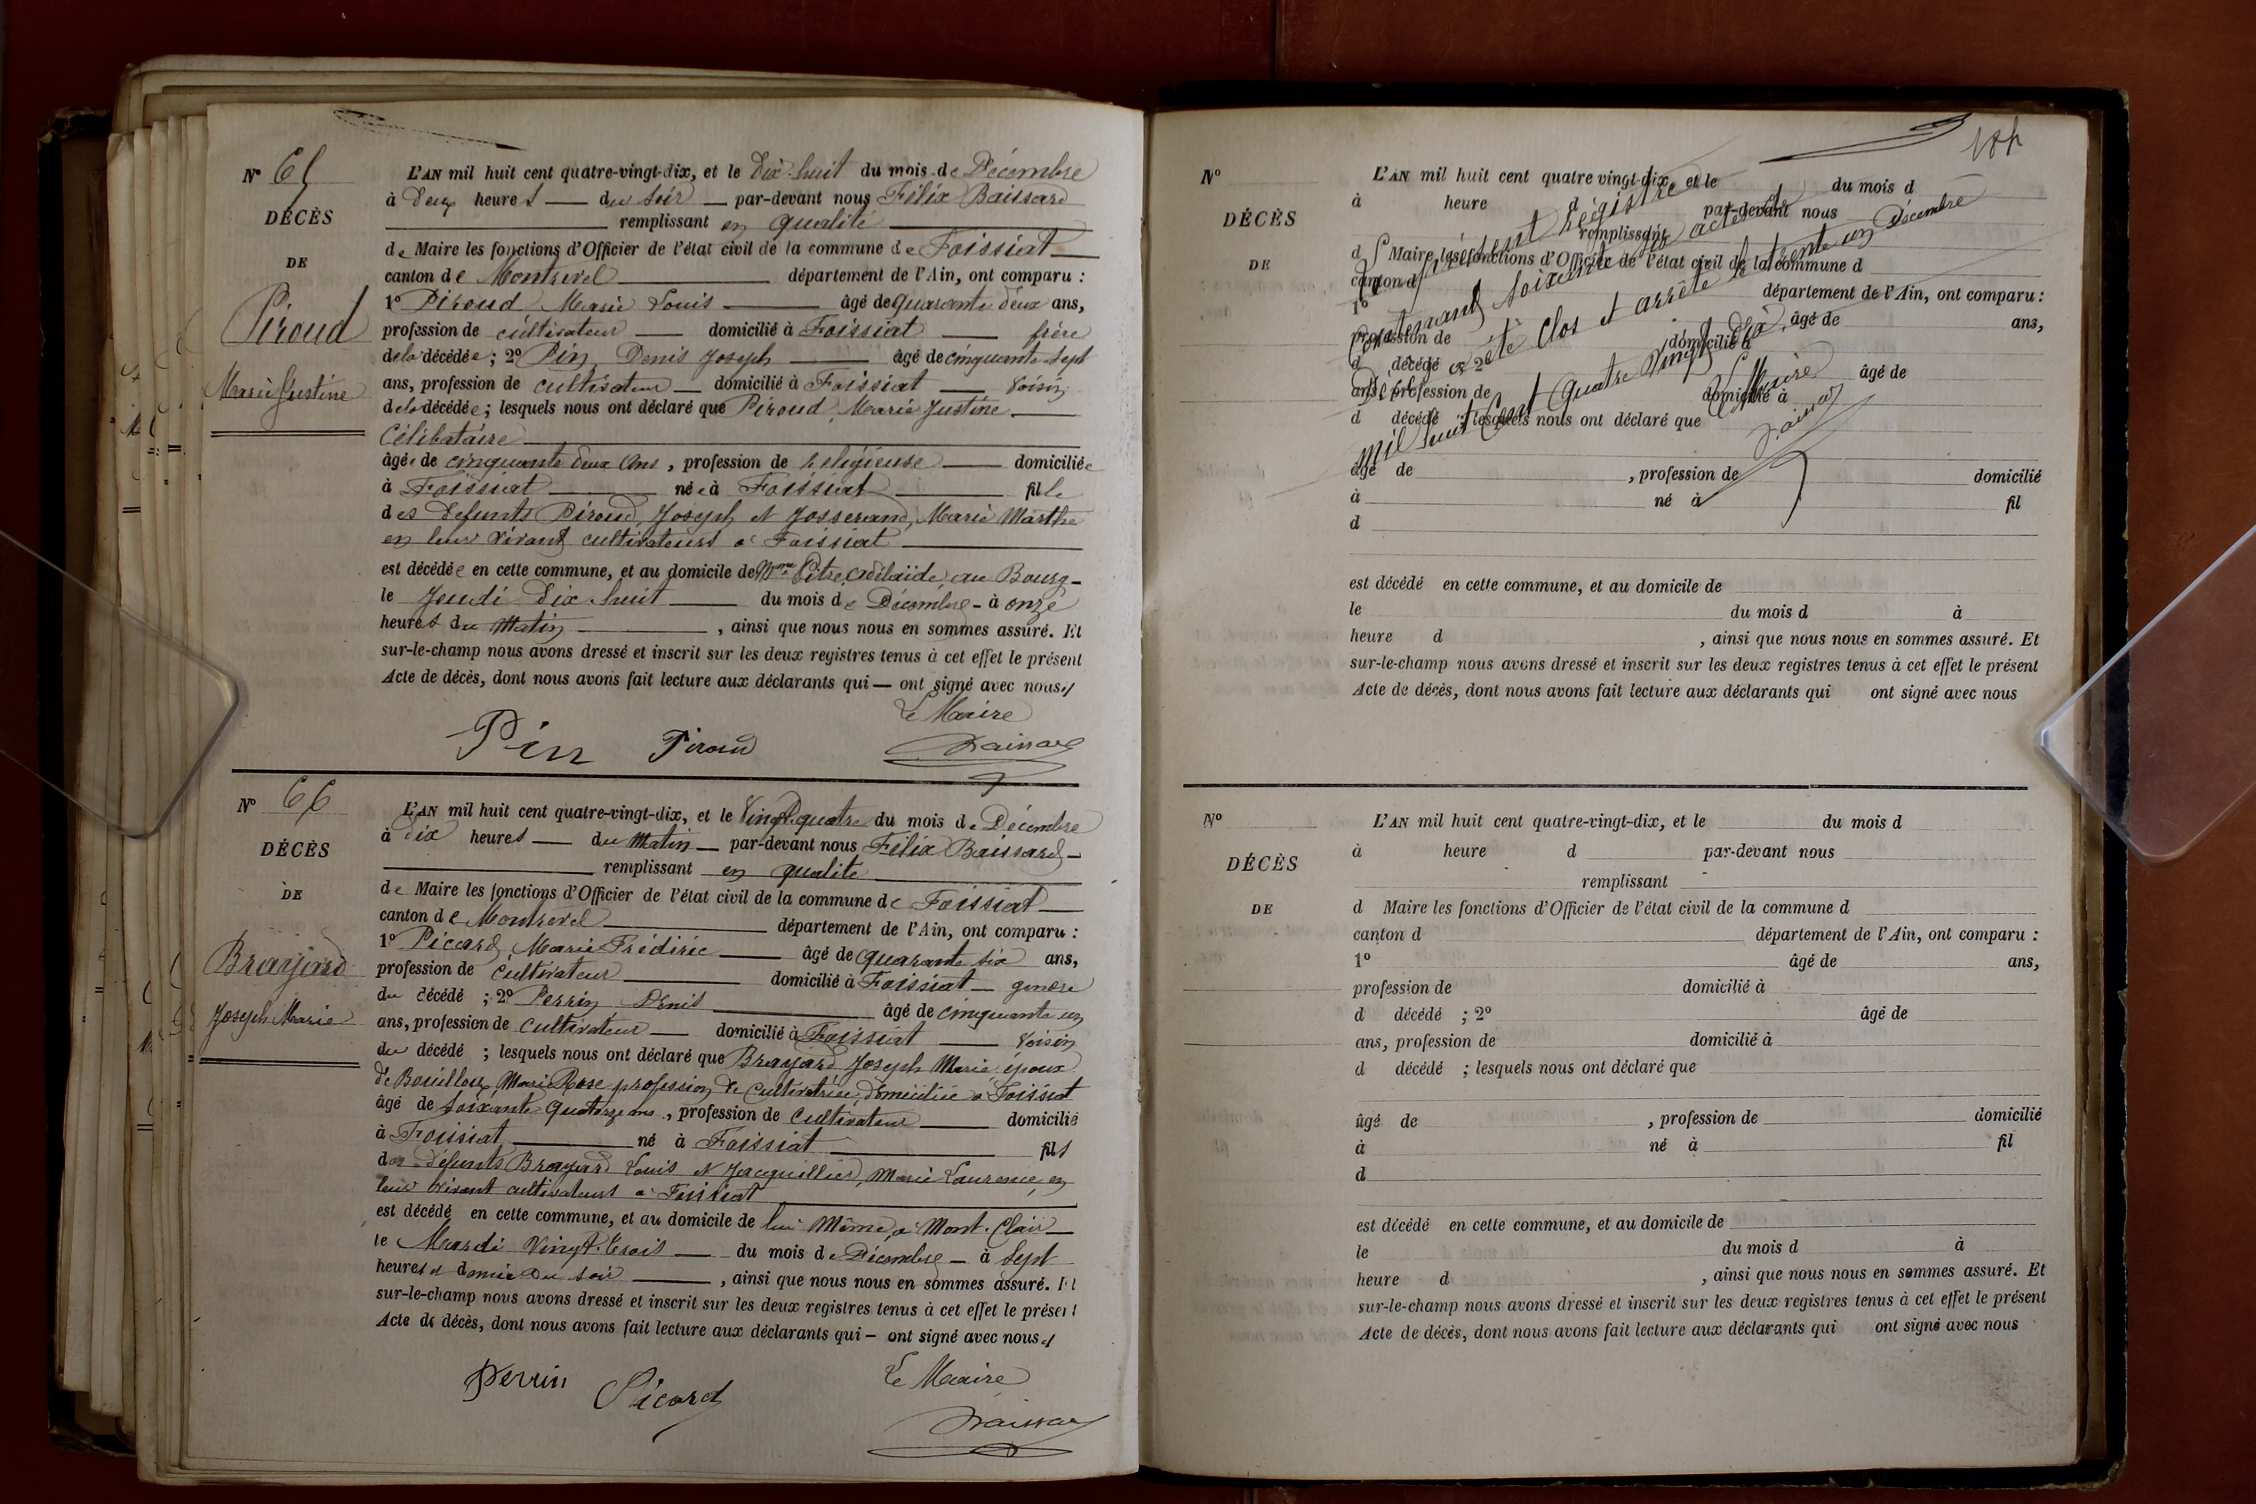 Nº 65
DÉCÈS
DE
Piroud
Marie Justine
L'AN mil huit cent quatre-vingt-dix, et le Dix-huit du mois de Décembre
à Deux heures du soir par-devant nous Félix Baissard
remplissant en qualité
de Maire les fonctions d'Officier de l'état civil de la commune de Foissiat
canton de Montrevel département de l'Ain, ont comparu :
1º Piroud Marie Louis âgé de quarante deux ans,
profession de cultivateur domicilié à Foissiat frère
de la décédée ; 2º Pin Denis Joseph âgé de cinquante sept
ans, profession de cultivateur domicilié à Foissiat Voisin
de la décédée ; lesquels nous ont déclaré que Piroud Marie Justine
Célibataire
âgée de cinquante deux ans, profession de religieuse domiciliée
à Foissiat née à Foissiat fille
des défunts Piroud, Joseph et Josserand, Marie Marthe
en leur vivant cultivateurs à Foissiat
est décédée en cette commune, et au domicile de Adélaïde, au Bourg
le Jeudi dix-huit du mois de Décembre à onze
heures du Matin, ainsi que nous nous en sommes assuré. Et
sur-le-champ nous avons dressé et inscrit sur les deux registres tenus à cet effet le présent
Acte de décès, dont nous avons fait lecture aux déclarants qui ont signé avec nous
Le Maire
Pin Piroud Baissard
Nº 66
DÉCÈS
DE
Brayard
Joseph Marie
L'AN mil huit cent quatre-vingt-dix, et le Vingt quatre du mois de Décembre
à Dix heures du Matin par-devant nous Félix Baissard
remplissant en qualité
de Maire les fonctions d'Officier de l'état civil de la commune de Foissiat
canton de Montrevel département de l'Ain, ont comparu :
1º Piccard Marie Frédéric âgé de quarante six ans,
profession de cultivateur domicilié à Foissiat gendre
du décédé ; 2º Perrin Denis âgé de cinquante un
ans, profession de cultivateur domicilié à Foissiat Voisin
du décédé ; lesquels nous ont déclaré que Brayard Joseph Marie époux
de Bouilloux Marie Rose profession de cultivatrice, domiciliée à Foissiat
âgé de soixante quatorze ans, profession de cultivateur domicilié
à Foissiat né à Foissiat fils
des défunts Brayard Louis et Jacquillier, Marie Laurence, en
leur vivant cultivateurs à Foissiat
est décédé en cette commune, et au domicile de lui Même, à Mont-Clair
le Mardi Vingt-trois du mois de Décembre à Sept
heures et demie du soir, ainsi que nous nous en sommes assuré. Et
sur-le-champ nous avons dressé et inscrit sur les deux registres tenus à cet effet le présent
Acte de décès, dont nous avons fait lecture aux déclarants qui ont signé avec nous
Le Maire
Perrin Picard Baissard
Nº
DÉCÈS
DE
L'AN mil huit cent quatre vingt-dix, et le du mois d
à heure d par-devant nous
remplissant
d Maire les fonctions d'Officier de l'état civil de la commune d
canton d département de l'Ain, ont comparu :
1º âgé de ans,
profession de domicilié à
d décédé ; 2º âgé de
ans, profession de domicilié à
d décédé ; lesquels nous ont déclaré que
âgé de , profession de domicilié
à né à fil
d
est décédé en cette commune, et au domicile de
le du mois d à
heure d , ainsi que nous nous en sommes assuré. Et
sur-le-champ nous avons dressé et inscrit sur les deux registres tenus à cet effet le présent
Acte de décès, dont nous avons fait lecture aux déclarants qui ont signé avec nous
Le présent Registre
Contenant soixante six actes de
Décès a été Clos et arrêté le trente un Décembre
mil huit Cent Quatre Vingt Dix.
Le Maire
Baissard
Nº
DÉCÈS
DE
L'AN mil huit cent quatre-vingt-dix, et le du mois d
à heure d par-devant nous
remplissant
d Maire les fonctions d'Officier de l'état civil de la commune d
canton d département de l'Ain, ont comparu :
1º âgé de ans,
profession de domicilié à
d décédé ; 2º âgé de
ans, profession de domicilié à
d décédé ; lesquels nous ont déclaré que
âgé de , profession de domicilié
à né à fil
d
est décédé en cette commune, et au domicile de
le du mois d à
heure d , ainsi que nous nous en sommes assuré. Et
sur-le-champ nous avons dressé et inscrit sur les deux registres tenus à cet effet le présent
Acte de décès, dont nous avons fait lecture aux déclarants qui ont signé avec nous